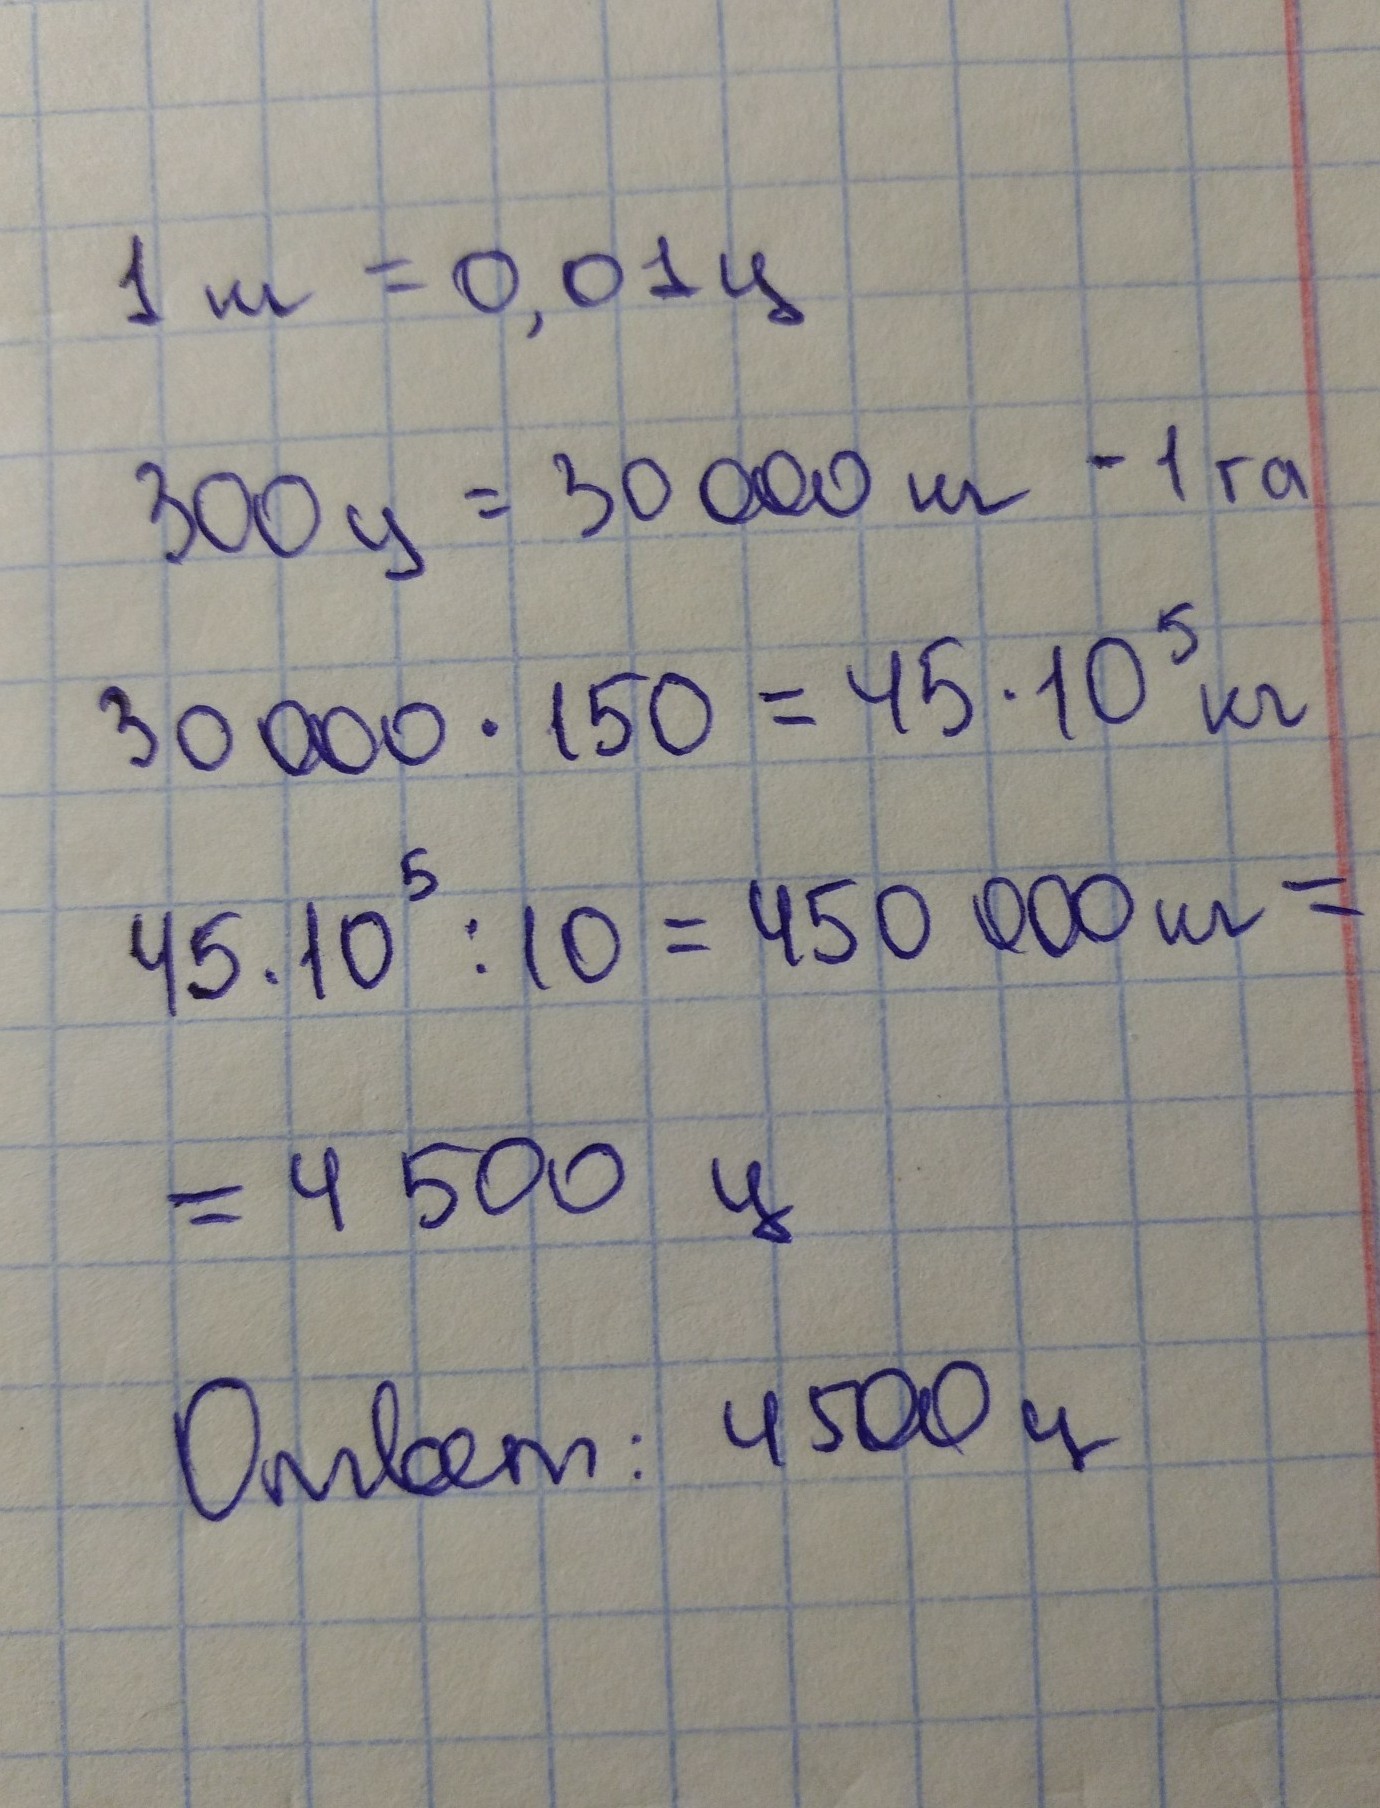 1 кг = 0,01 ц
300 ц = 30 000 кг - 1 га
30 000 · 150 = 45 · 10⁵ кг
45 · 10⁵ : 10 = 450 000 кг =
= 4 500 ц
Ответ: 4500 ц